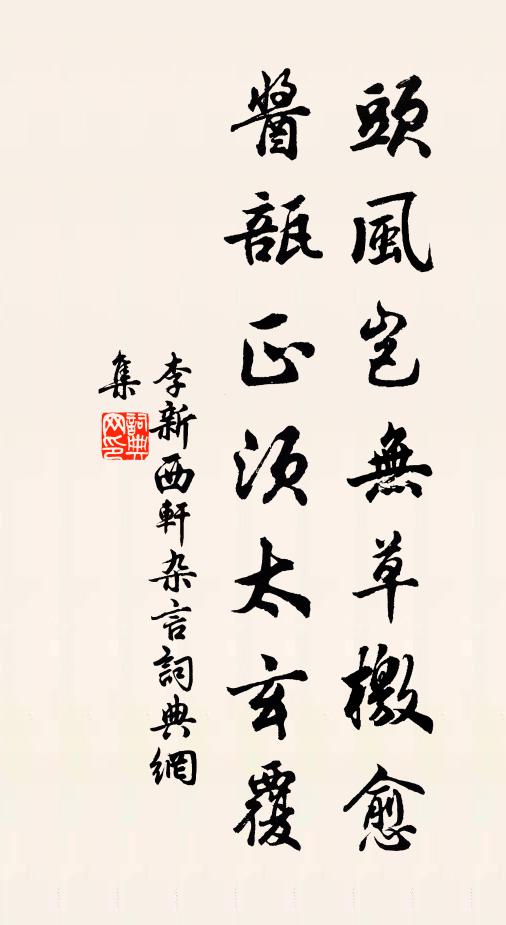 頭風豈無草檄愈
醬瓿正須太玄覆
李新西軒杂言詞典網
集
詞典網印